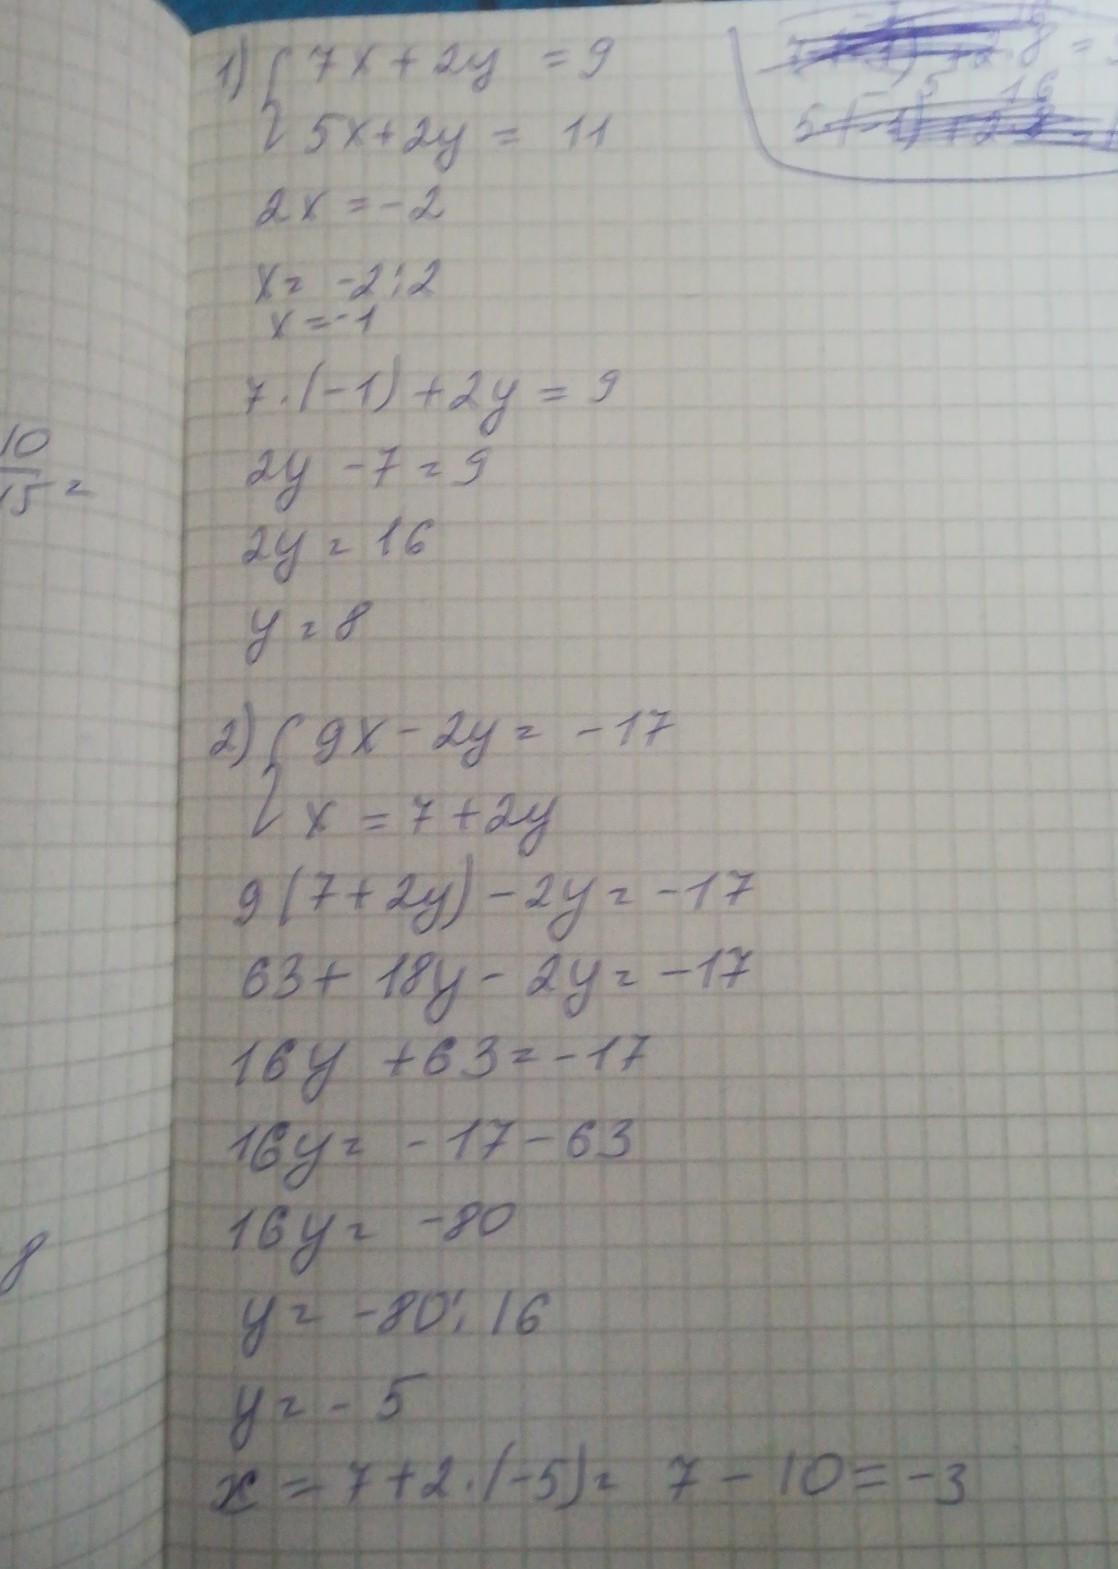 1) { 7x + 2y = 9
5x + 2y = 11
2x = -2
x = -2 : 2
x = -1
7 · (-1) + 2y = 9
2y - 7 = 9
2y = 16
y = 8
2) { 9x - 2y = -17
x = 7 + 2y
9(7 + 2y) - 2y = -17
63 + 18y - 2y = -17
16y + 63 = -17
16y = -17 - 63
16y = -80
y = -80 : 16
y = -5
x = 7 + 2 · (-5) = 7 - 10 = -3
10
15 =
8